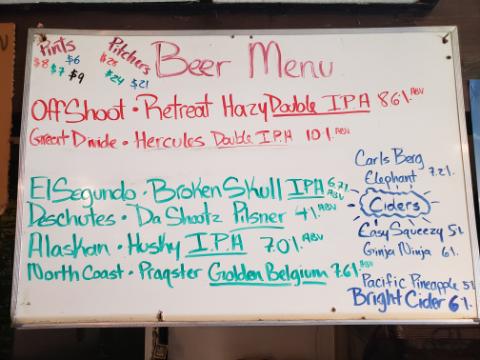 Pints
$6
$8 $7 $9
Pitchers
$28
$24 $21
Beer Menu
OffShoot • Retreat Hazy Double I.P.A 8.6% ABV
Great Divide • Hercules Double I.P.A 10% ABV
El Segundo • Broken Skull IPA 6.7% ABV
Deschutes • Da Shootz Pilsner 4% ABV
Alaskan • Husky I.P.A 7.0% ABV
North Coast • Pranqster Golden Belgium 7.6% ABV
Carls Berg
Elephant 7.2%
Ciders
Easy Squeezy 5%
Ginja Ninja 6%
Pacific Pineapple 5%
Bright Cider 6%